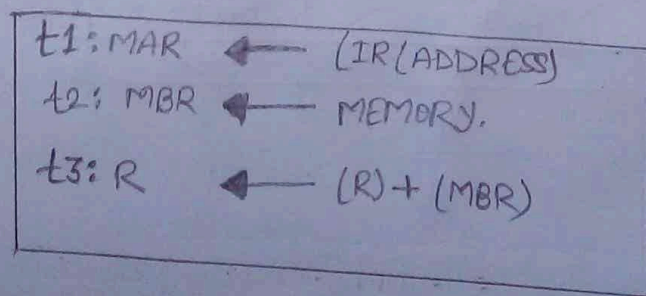 t1: MAR ← (IR(ADDRESS)
t2: MBR ← MEMORY.
t3: R ← (R) + (MBR)